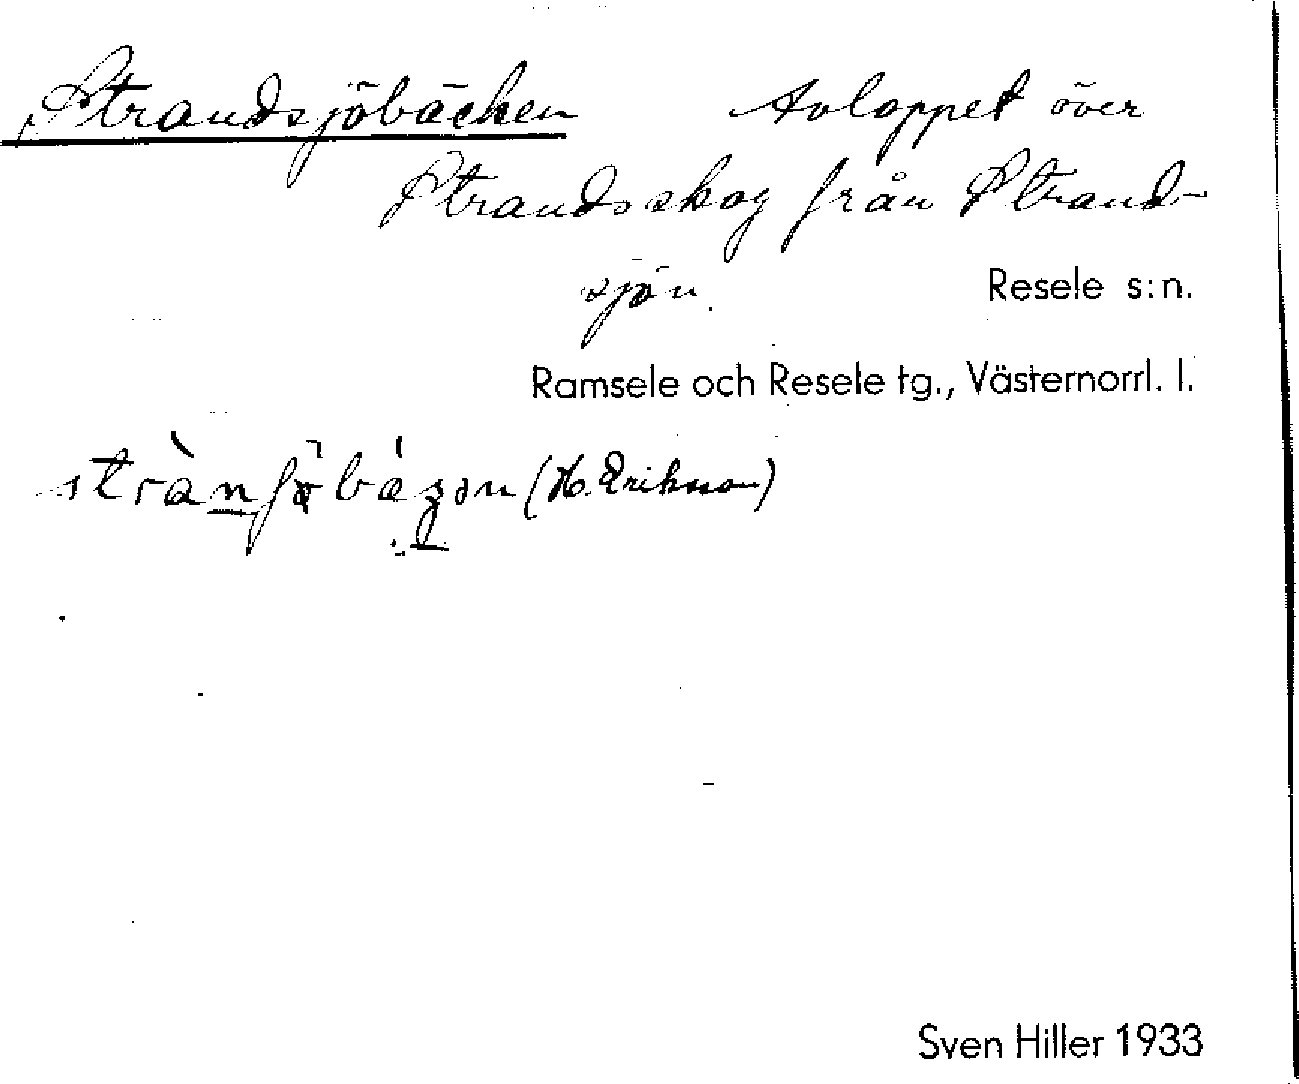 Strandsjöbäcken Avloppet över
Strandsskog från Strand-
sjön.
Resele s:n.
Ramsele och Resele tg., Västernorrl. l.
(H. Erikson)
Sven Hiller 1933